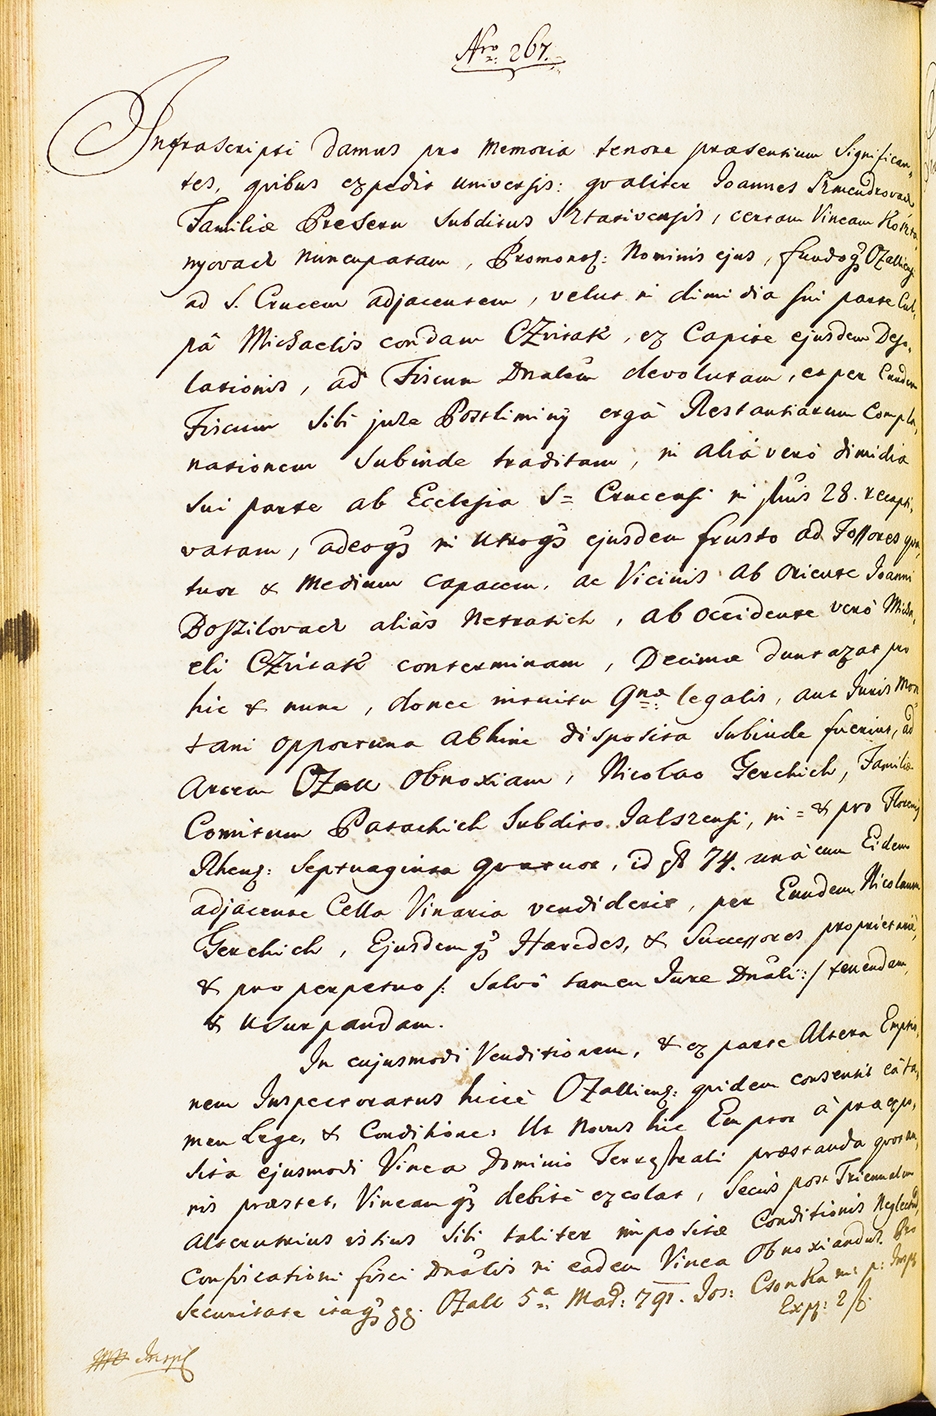 Nro 267.
Infrascripti damus pro memoria tenore praesentium Significan„
tes, quibus expedit universis: qualiter Joannes
Familiae Presern Subditus Sztativensis, certam Vineam
nyovach nuncupatam, Promont: Nominis ejus, fundoqs Ozalliens
ad S. Crucem adjacentem, velut in dimidia sui parte Cul„
pâ Michaelis condam CZvitak, ex Capite ejusdem Deso„
lationis, ad Fiscum Dnalem devolutam, et per Eundem
Fiscum Sibi jure Postliminij ergà Restantiarum Compla„
nationem Subinde traditam, in aliâ verò dimidia
Sui parte ab Ecclesia S= Crucensi in fluis 28. recapti„
vatam, adeoqs in utroqs ejusdem frusto ad Fossores qua„
tuor & medium capacem, ac Vicinis ab oriente Joanni
Boszilovach aliàs Netratich, ab occidente verò Micha„
eli CZvitak conterminam, Decimae duntaxat pro
hic & nunc, donec intuitu qnae legalis, aut Juris Mon„
tani opportuna abhinc disposita Subinde fuerint, ad
Arcem OZall obnoxiam, Nicolao Gerchich, Familiae
Comitum Patachich Subdito Jalszensi, in= & pro Florenis
Rhens: Septuaginta quatuor, id est 74. unà cum Eidem
adjacente Cella Vinaria vendiderit, per Eundem Nicolaum
Gerchich, Ejusdemqs Haeredes, & Successores proprietariè,
& pro perpetuo /: Salvô tamen Jure Dnali :/ tenendam,
& usurpandam.
In cujusmodi Venditionem, & ex parte Altera Emptio„
nem Inspectoratus hicce OZalliens: quidem consensit eâ ta„
men Lege, & Conditione: Ut novus hic Emptor à praeexpo„
sita ejusmodi Vinea Dominio Terrestrali praestanda quotan„
nis praestet, Vineamqs debitè excolat, Secùs post Triennalem
alterutrius istius Sibi taliter impositae Conditionis Neglectum,
Confiscationi fisci Dnalis in eadem Vinea obnoxiandus. Pro
Securitate itaqs gg. OZall 5a Maji 791. Jos: Csonka m: p: Insp
Exp: 2 f.
Insp